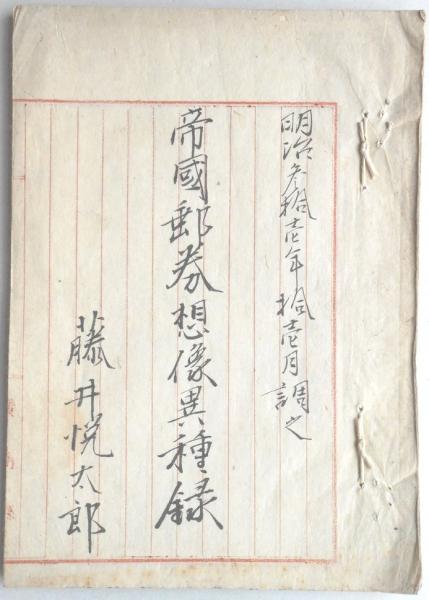 明治参拾壱年拾壱月調之
帝國郵券想像異種録
藤井悦太郎